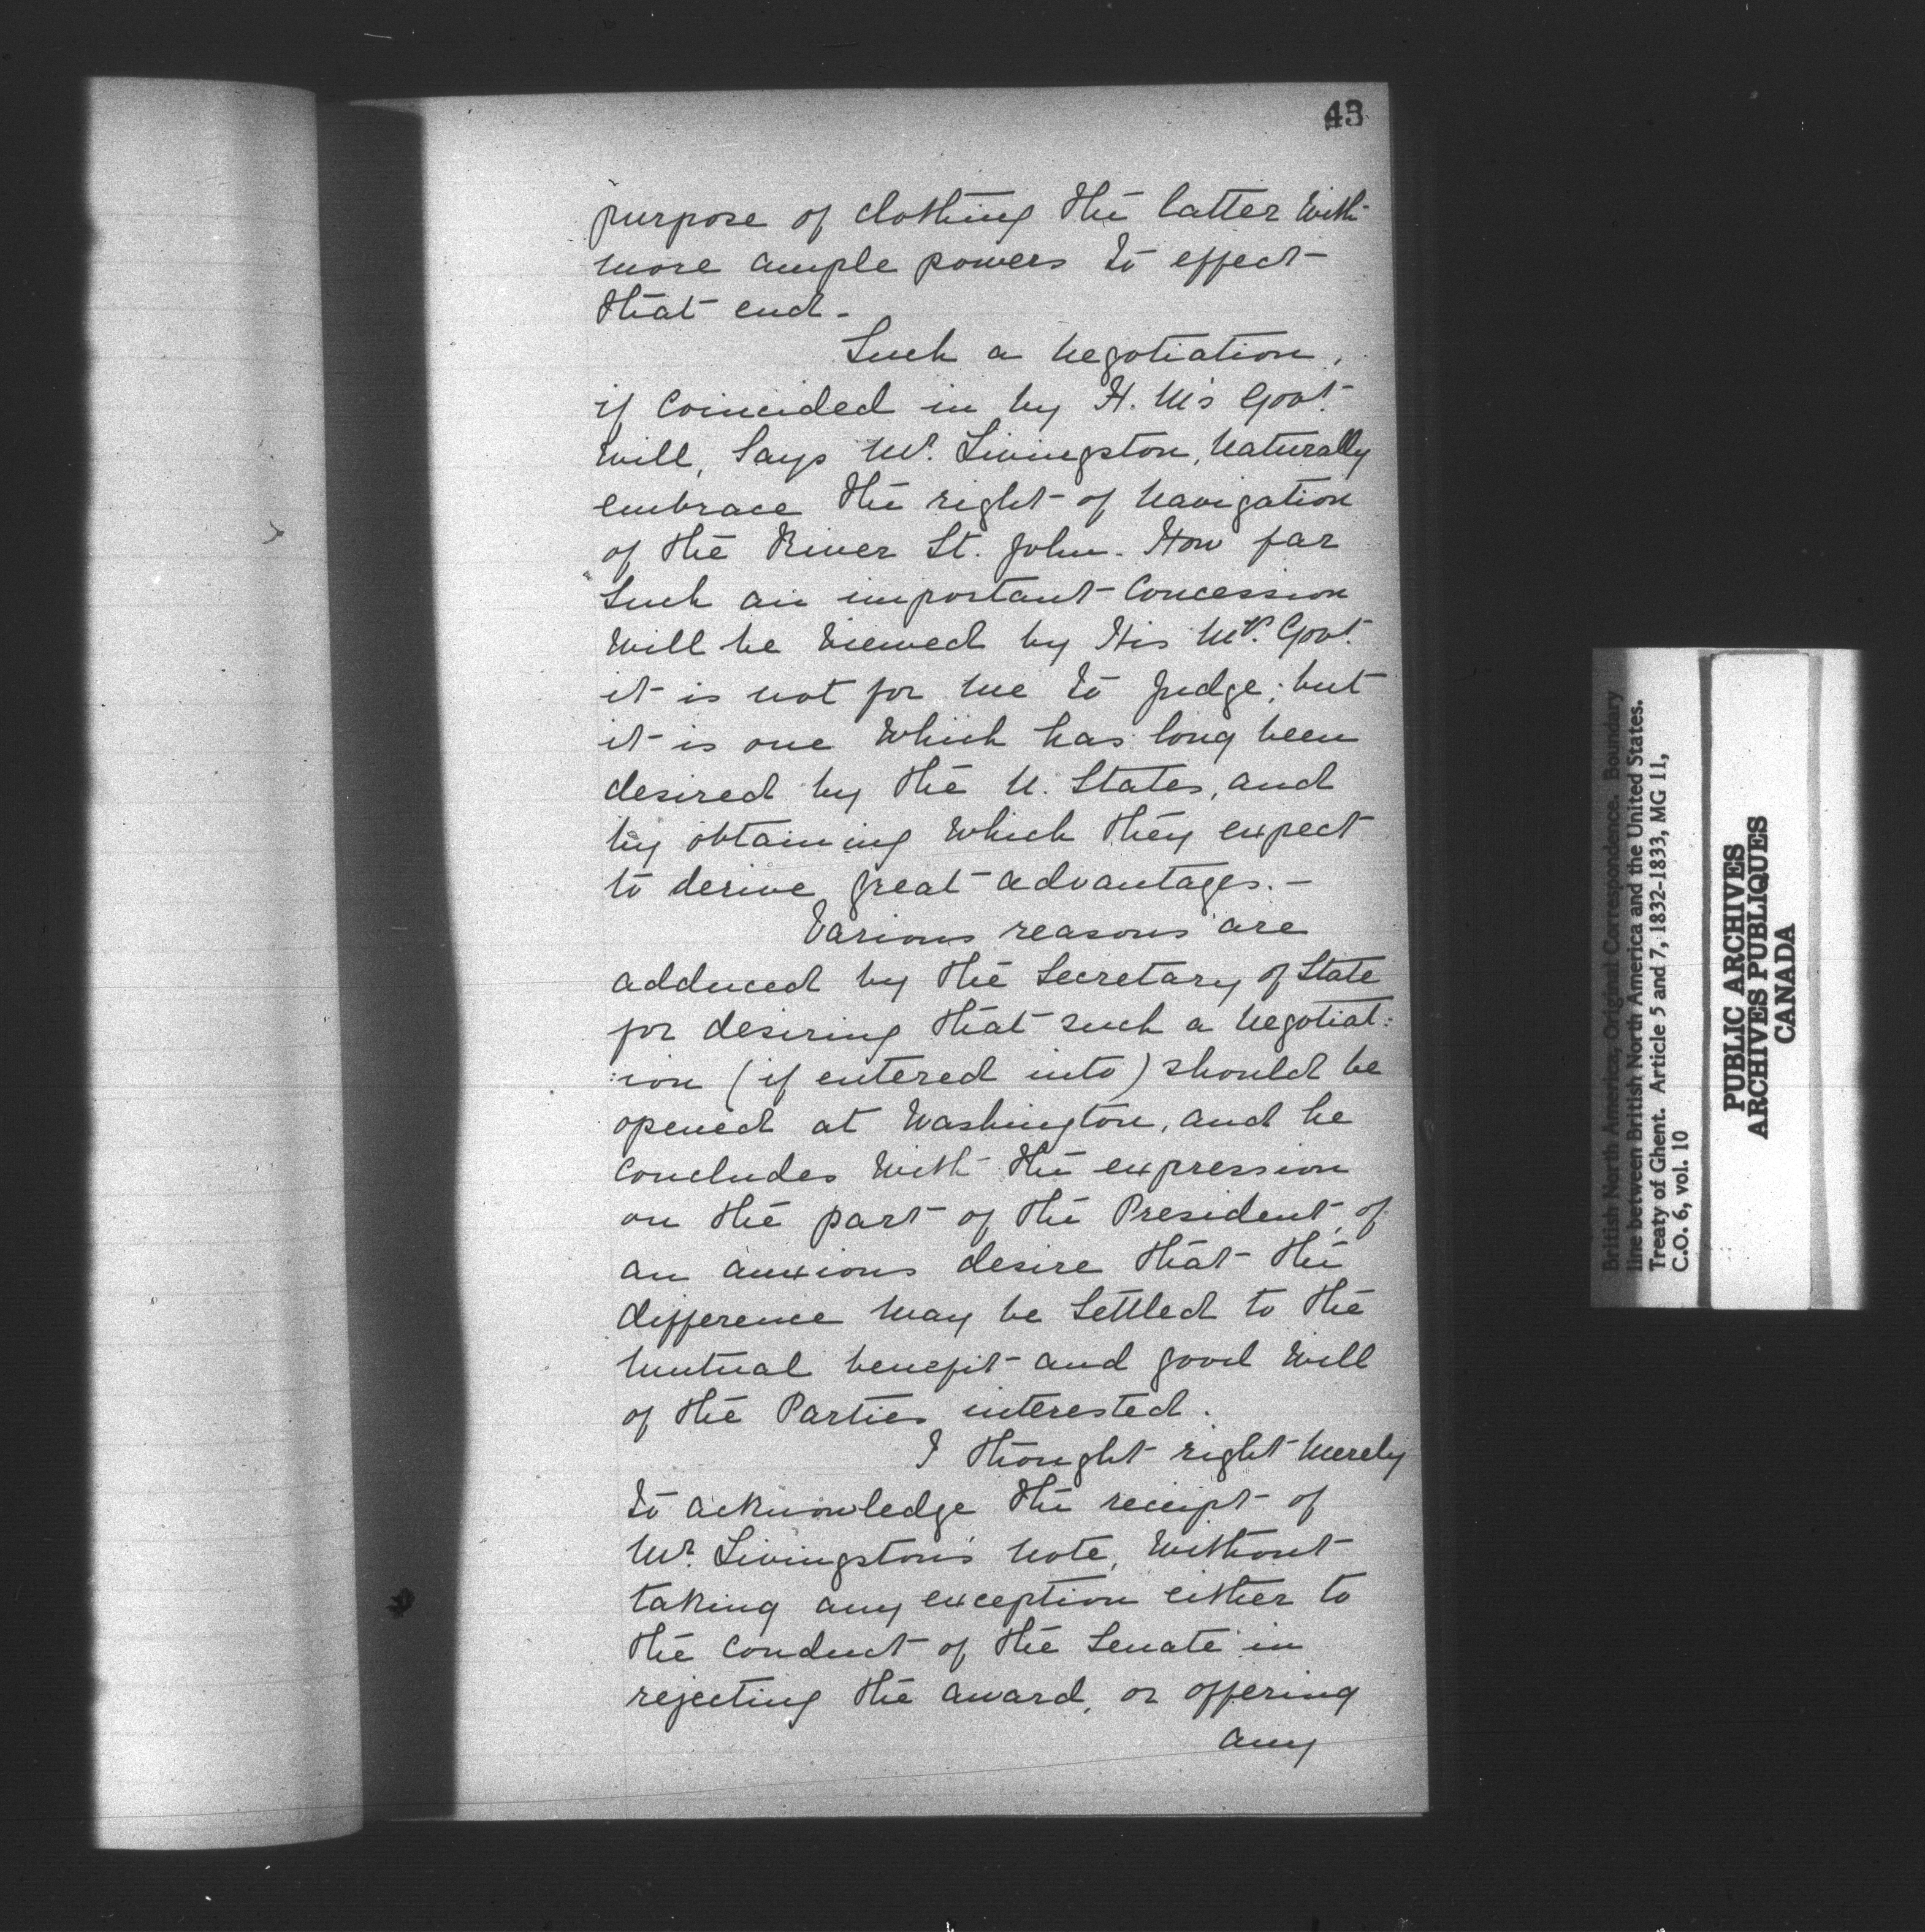 43
purpose of clothing the latter with
more ample powers to effect
that end.
Such a negotiation,
if coincided in by H. M's Govt.
will, says Mr. Livingston, naturally
embrace the right of navigation
of the River St. John. How far
such an important concession
will be viewed by His My. Govt.
it is not for me to judge; but
it is one which has long been
desired by the U. States, and
by obtaining which they expect
to derive great advantages. —
Various reasons are
adduced by the Secretary of State
for desiring that such a negotiat:
:ion (if entered into) should be
opened at Washington, and he
concludes with the expression
on the part of the President, of
an anxious desire that the
difference may be settled to the
mutual benefit and good will
of the Parties interested.
I thought right merely
to acknowledge the receipt of
Mr. Livingston's note, without
taking any exception either to
the conduct of the Senate in
rejecting the award, or offering
any
British North America, Original Correspondence. Boundary
line between British North America and the United States.
Treaty of Ghent. Article 5 and 7, 1832-1833, MG 11,
C.O. 6, vol. 10
PUBLIC ARCHIVES
ARCHIVES PUBLIQUES
CANADA